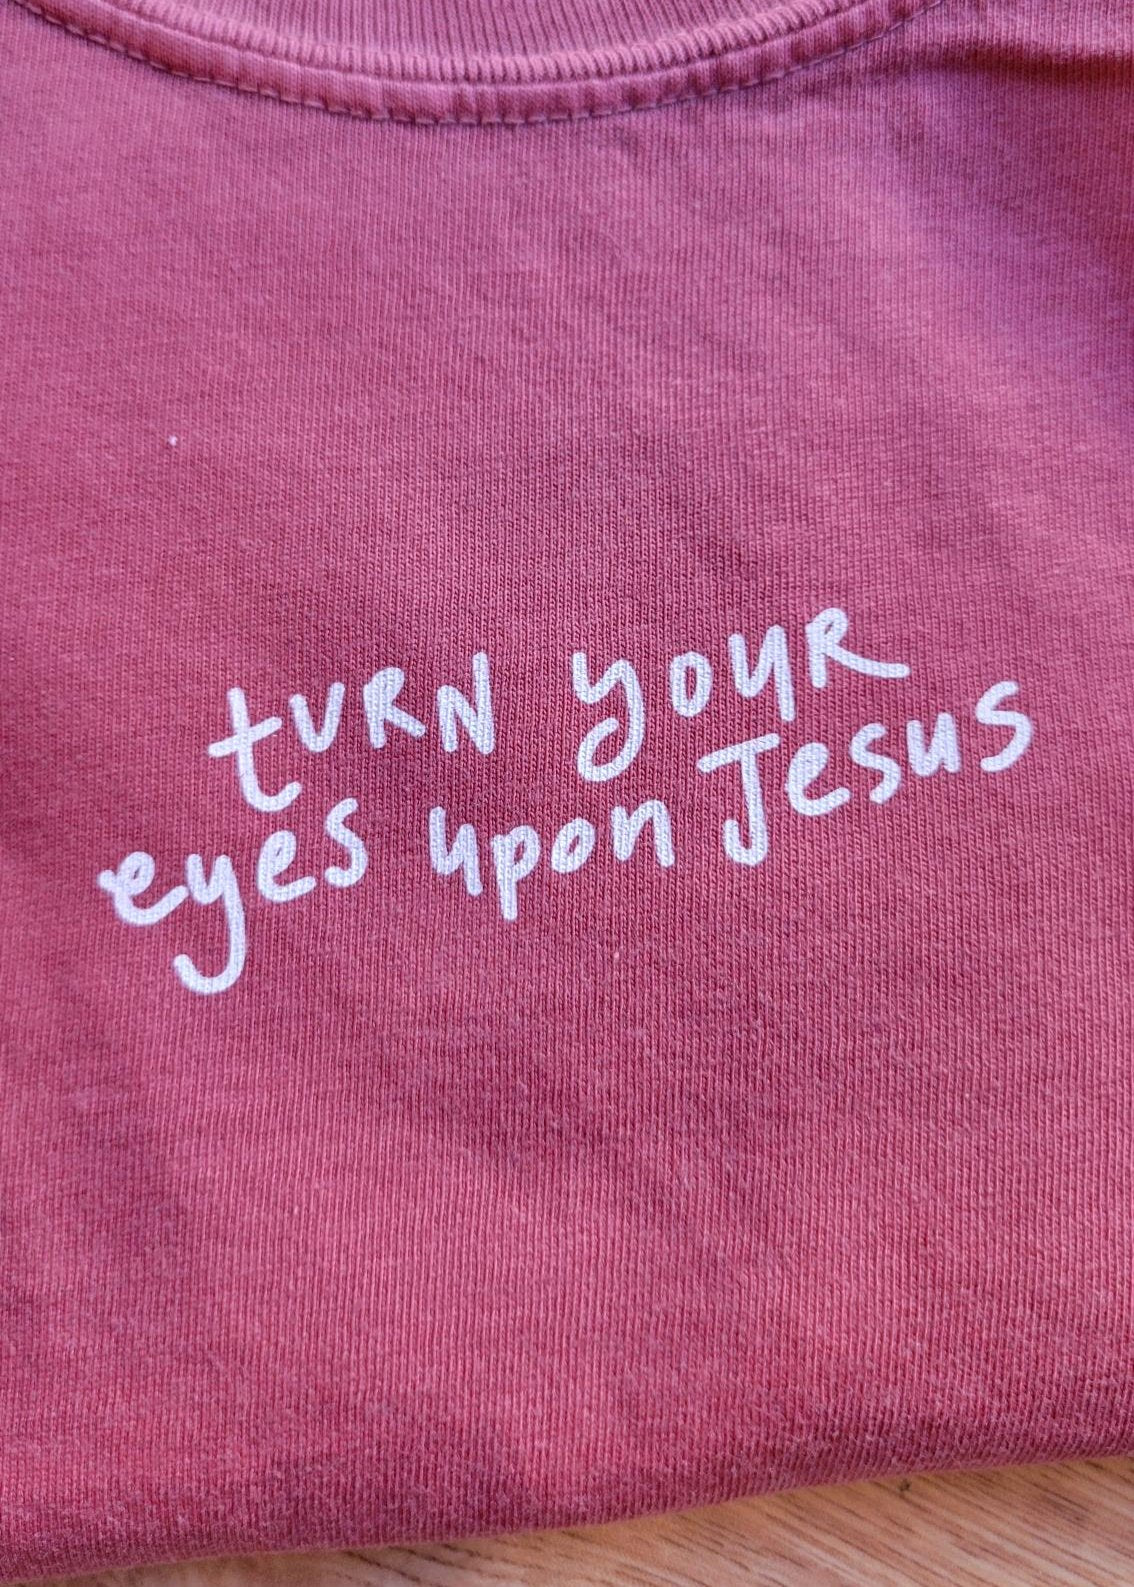 tURN yOUR
eyes upon Jesus